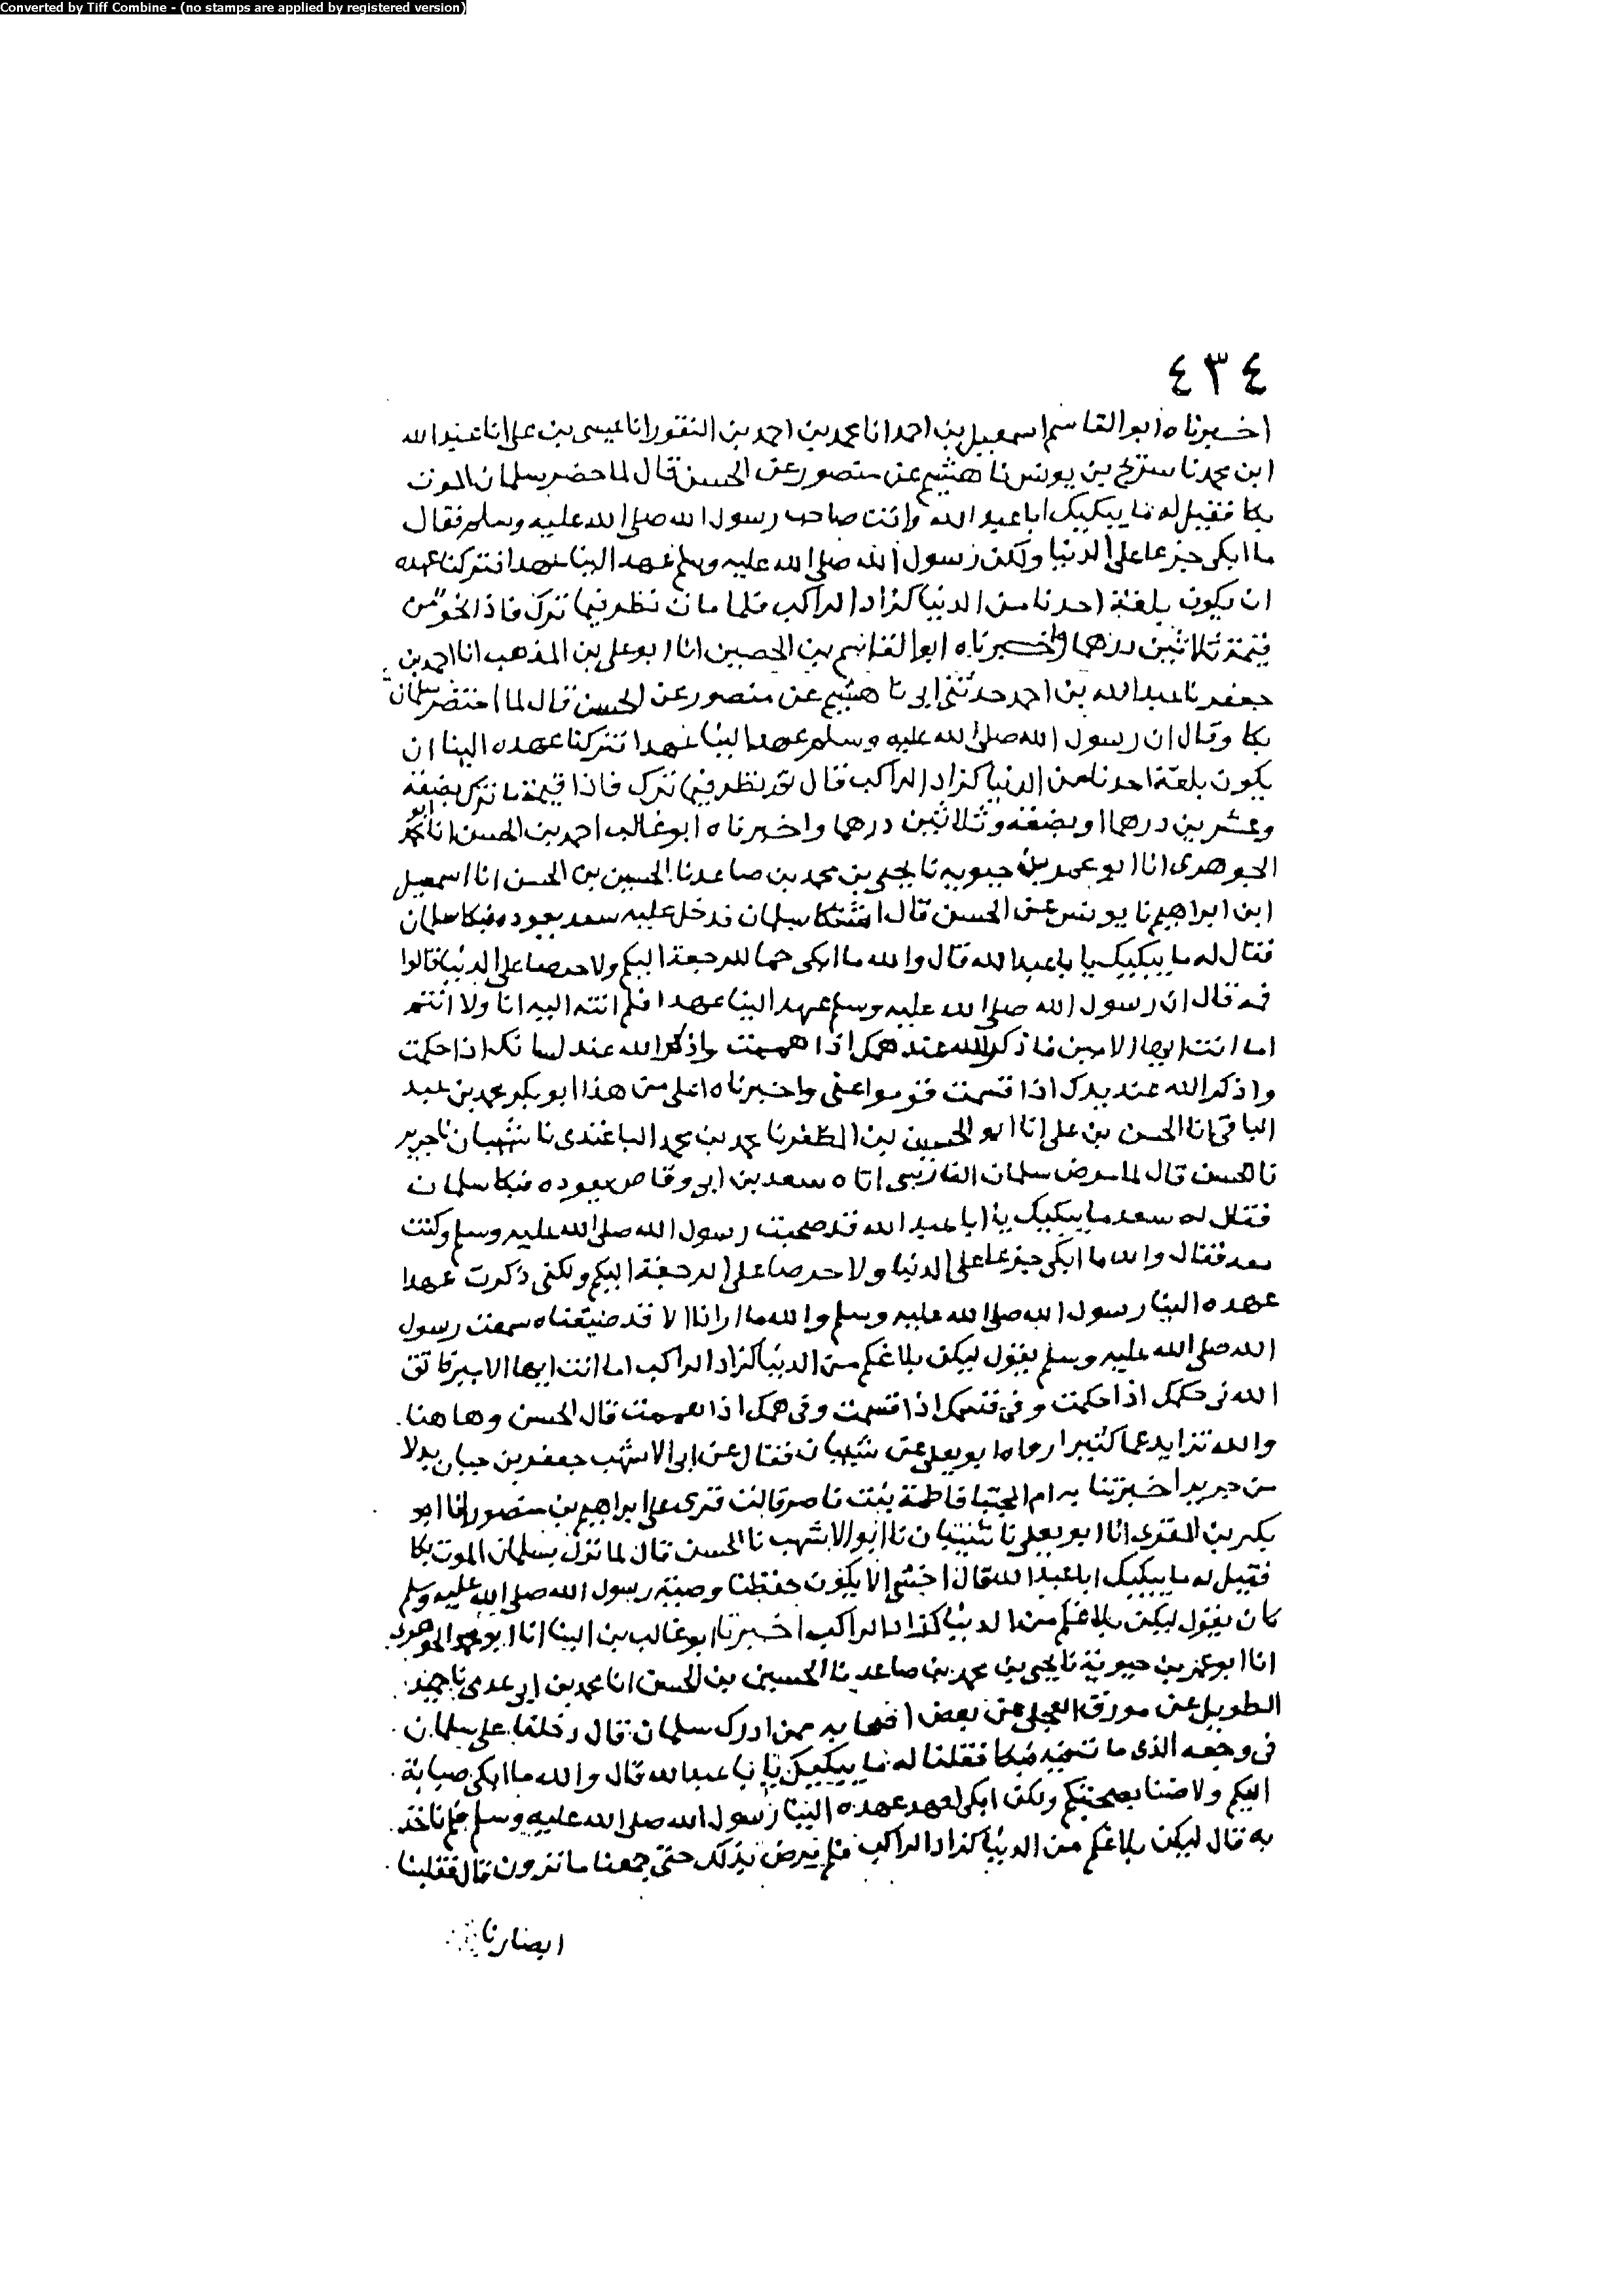 Converted by Tiff Combine - (no stamps are applied by registered version)
٤٣٤
اخبرناه ابو القاسم اسمعيل بن احمد انا محمد بن احمد بن النقور انا عيسى بن على انا عبد الله
ابن محمد نا سريج بن يونس نا هشيم عن منصور عن الحسن قال لما حضر سلمان الموت
بكا فقيل له ما يبكيك ابا عبد الله وانت صاحب رسول الله صلى الله عليه وسلم فقال
ما ابكى جزعا على الدنيا ولكن رسول الله صلى الله عليه وسلم عهد الينا عهدا فتركنا عهده
ان يكون بلغة احدنا من الدنيا كزاد الراكب فلما مات نظر فيما ترك فاذا نحو من
قيمة ثلاثين درهما واخبرناه ابو القاسم بن الحصين انا ابو على بن المذهب انا احمد بن
جعفر نا عبد الله بن احمد حدثنى ابى نا هشيم عن منصور عن الحسن قال لما احتضر سلمان
بكا وقال ان رسول الله صلى الله عليه وسلم عهد الينا عهدا تركنا عهده الينا ان
يكون بلغة احدنا من الدنيا كزاد الراكب قال ثم نظر فيما ترك فاذا قيمة ما ترك بضعة
وعشرين درهما او بضعة وثلاثين درهما واخبرناه ابو غالب احمد بن الحسن انا ابو محمد
الجوهرى انا ابو عمر بن حيويه نا يحيى بن محمد بن صاعد نا الحسين بن الحسن انا اسمعيل
ابن ابراهيم نا يونس عن الحسن قال اشتكا سلمان فدخل عليه سعد يعوده فبكا سلمان
فقال له ما يبكيك يا با عبد الله قال والله ما ابكى حبا للرجعة اليكم ولا حرصا على الدنيا قالوا
فمه قال ان رسول الله صلى الله عليه وسلم عهد الينا عهدا فلم انته اليه انا ولا انتم
اما انت ايها الامير فاذكر الله عند همك اذا هممت واذكر الله عند لسانك اذا حكمت
واذكر الله عند يدك اذا قسمت قوموا عنى واخبرناه اعلى من هذا ابو بكر محمد بن عبد
الباقى انا الحسن بن على انا ابو الحسين بن المظفر نا محمد بن محمد الباغندى نا شيبان نا جرير
نا الحسن قال لما مرض سلمان الفارسى اتاه سعد بن ابى وقاص يعوده فبكا سلمان
فقال له سعد ما يبكيك يا ابا عبد الله قد صحبت رسول الله صلى الله عليه وسلم وكنت
معه فقال والله ما ابكى جزعا على الدنيا ولا حرصا على الرجعة اليكم ولكنى ذكرت عهدا
عهده الينا رسول الله صلى الله عليه وسلم والله ما ارانا الا قد ضيعناه سمعت رسول
الله صلى الله عليه وسلم يقول ليكن بلاغكم من الدنيا كزاد الراكب اما انت ايها الامير فاتق
الله فى حكمك اذا حكمت وفى قسمك اذا قسمت وفى همك اذا هممت قال الحسن وها هنا
والله تزايد عما كثيرا رواه ابو يعلى عن شيبان فقال عن ابى الاشهب جعفر بن حيان بدلا
من جرير اخبرتنا به ام المجتبا فاطمة بنت ناصر قالت قرى على ابراهيم بن منصور انا ابو
بكر بن المقرى انا ابو يعلى نا شيبان نا ابو الاشهب نا الحسن قال لما نزل بسلمان الموت بكا
فقيل له ما يبكيك ابا عبد الله قال اخشى الا يكون حفظنا وصية رسول الله صلى الله عليه وسلم
كان يقول ليكن بلاغكم من الدنيا كزاد الراكب اخبرنا ابو غالب بن البنا انا ابو محمد الجوهرى
انا ابو عمر بن حيوية نا يحيى بن محمد بن صاعد نا الحسين بن الحسن انا محمد بن ابى عدى نا حميد
الطويل عن مورق العجلى عن بعض اصحابه ممن ادرك سلمان قال دخلنا على سلمان
فى وجعه الذى مات فيه فبكا فقلنا له ما يبكيك يا با عبد الله قال والله ما ابكى صبابة
اليكم ولا ضنا بصحبتكم ولكن ابكى لعهد عهده الينا رسول الله صلى الله عليه وسلم فلم ناخذ
به قال ليكن بلاغكم من الدنيا كزاد الراكب فلم نرض بذلك حتى جمعنا ما ترون قال فقلبنا
ابصارنا